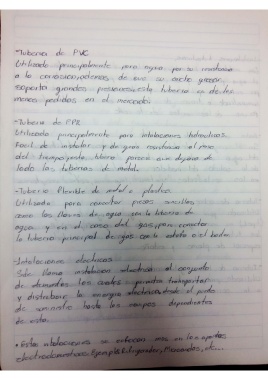 -Tuberia de PVC
Utilizado principalmente para agua por su resistencia
a la corrosion, ademas de que su ancho grosor,
soporta grandes presiones. Esta tuberia es de las
menos pedidas en el mercado.
-Tuberia de PPR
Utilizada principalmente para intalaciones
Facil de instalar y de gran resistencia al paso
del tiempo, este tiene
todo la tuberias de metal.
-Tuberia Flexible de metal o plastico.
Utilizada para conectar piezas sencillas
como las llaves de agua con la tuberia de
agua y en el caso del gas, para conectar
la tuberia principal de gas con la estufa o el boiler
-Intalaciones electricas
Se le llama instalacion electrica al conjunto
de elementos los cuales permiten transportar
y distribuir la energia electrica, desde el punto
de suministro hasta los equipos dependientes
de esta.
• Estas intalaciones se enfocan mas en los aparatos
electrodomesticos, Ejemplo: Refrigerador, Microondas, etc...